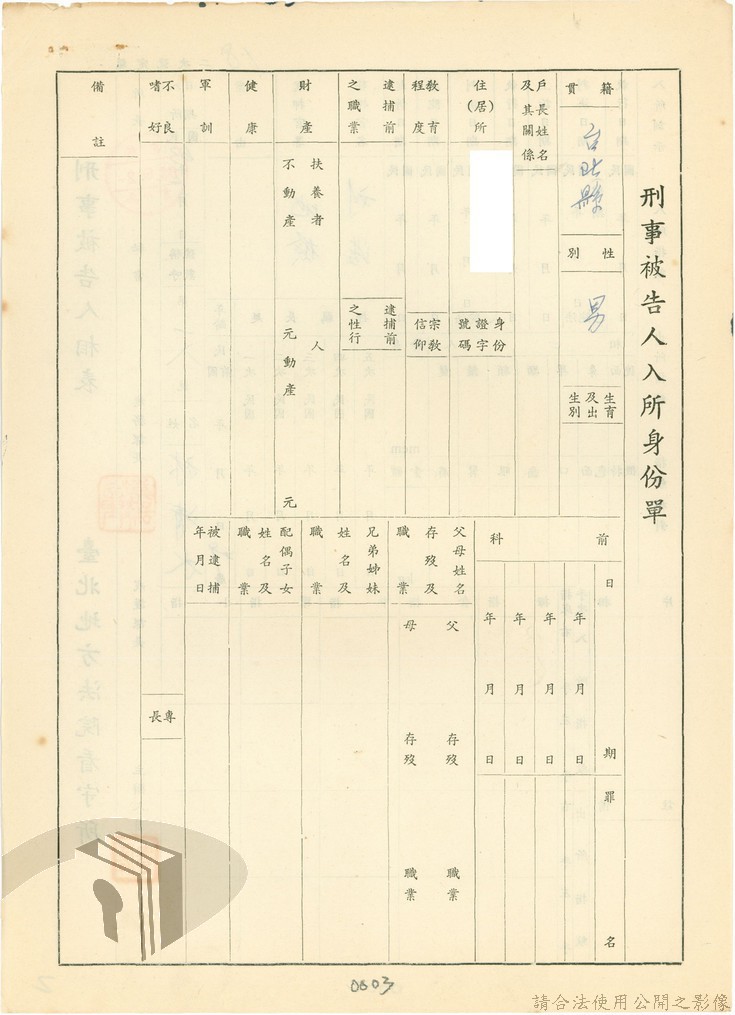 刑事被告人入所身份單
籍貫
台北縣
性別
男
生育及出生別
戶長姓名及其關係
住(居)所
身份證字號碼
教育程度
宗教信仰
逮捕前之職業
逮捕前之性行
財產
扶養者 人
不動產 元
動產 元
健康
軍訓
不良嗜好
備註
前科
日期
年 月 日
年 月 日
年 月 日
年 月 日
罪名
父母姓名存歿及職業
父 存歿 職業
母 存歿 職業
兄弟姊妹姓名及職業
配偶子女姓名及職業
被逮捕年月日
專長
刑事被告人相表
臺北地方法院看守所
0603
請合法使用公開之影像